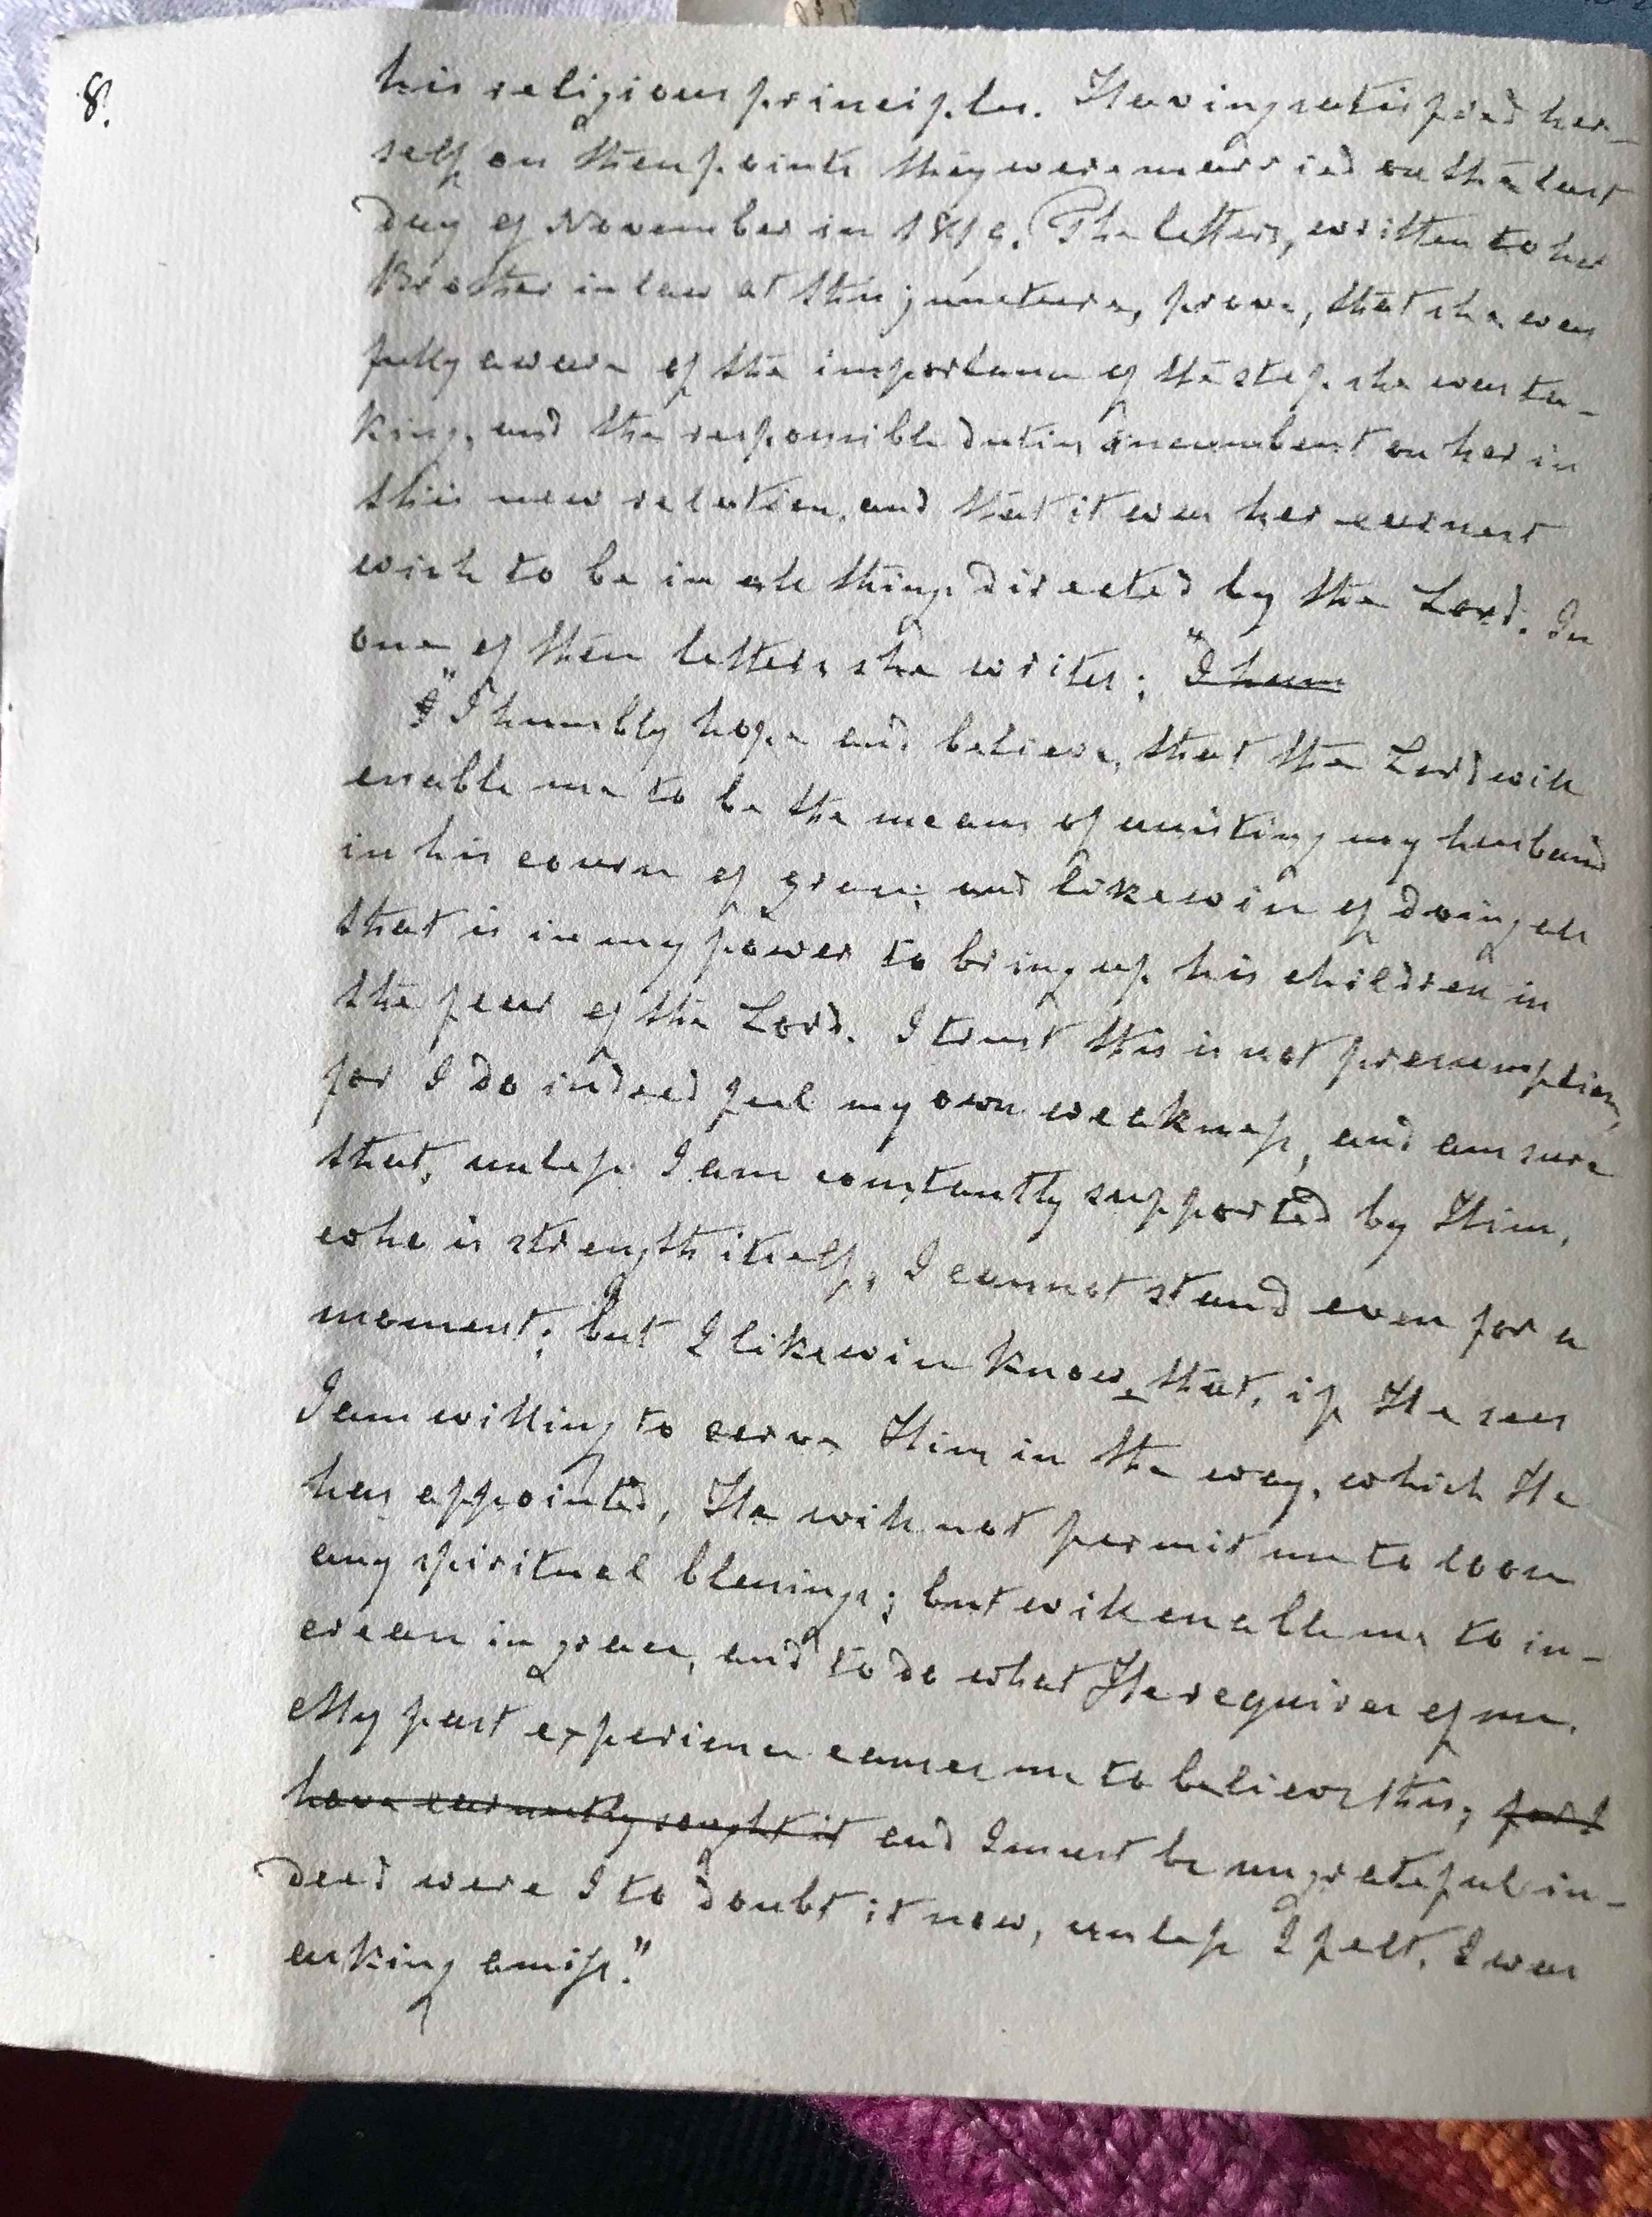 8.
his religious principles. Having satisfied her-
self on these points they were married on the last
day of November in 1819. The letters, written to her
Brother in law at this juncture, prove, that she was
fully aware of the importance of the step she was ta-
king, and the responsible duties incumbent on her in
this new relation, and that it was her earnest
wish to be in all things directed by the Lord. In
one of these letters she writes; "I hum
"I humbly hope and believe, that the Lord will
enable me to be the means of assisting my husband
in his course of grace; and likewise of doing all
that is in my power to bring up his children in
the fear of the Lord. I trust this is not presumption,
for I do indeed feel my own weakness, and am sure
that, unless I am constantly supported by Him,
who is strength itself, I cannot stand even for a
moment; but I likewise know, that, if He sees
I am willing to serve Him in the way, which He
has appointed, He will not permit me to loose
any spiritual blessings; but will enable me to in-
crease in grace, and to do what He requires of me.
My past experience causes me to believe this, for I
have earnestly sought it and I must be ungrateful in-
deed were I to doubt it now, unless I felt, I was
asking amiss."